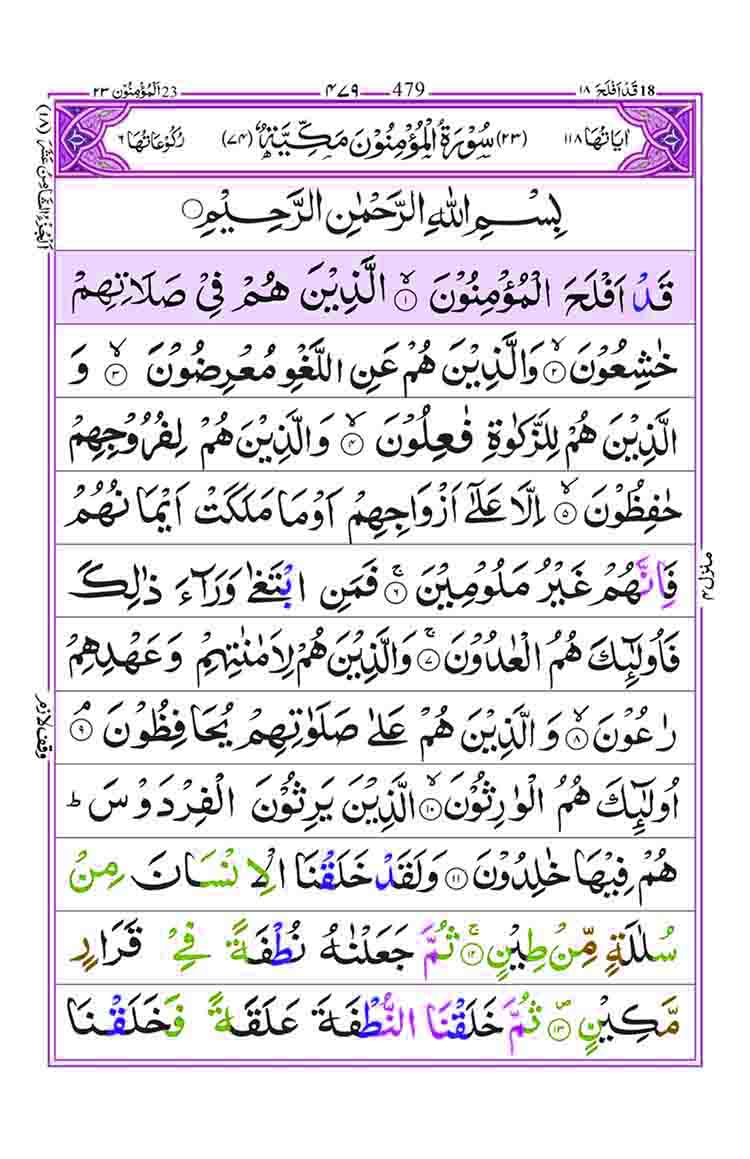 18 قَدْ اَفْلَحَ ١٨ 479 ٤٧٩ 23 اَلْمُؤْمِنُوْن ٢٣
اٰيَاتُهَا ١١٨ (٢٣) سُوْرَةُ الْمُؤْمِنُوْنَ مَكِّيَّةٌ (٧٤) رُكُوْعَاتُهَا ٦
بِسْمِ اللهِ الرَّحْمٰنِ الرَّحِيْمِ ۝
قَدْ اَفْلَحَ الْمُؤْمِنُوْنَ ۙ‏﴿۱﴾ الَّذِيْنَ هُمْ فِيْ صَلَاتِهِمْ
خٰشِعُوْنَ ۙ‏﴿۲﴾ وَالَّذِيْنَ هُمْ عَنِ اللَّغْوِ مُعْرِضُوْنَ ۙ‏﴿۳﴾ وَ
الَّذِيْنَ هُمْ لِلزَّكٰوةِ فٰعِلُوْنَ ۙ‏﴿۴﴾ وَالَّذِيْنَ هُمْ لِفُرُوْجِهِمْ
حٰفِظُوْنَ ۙ‏﴿۵﴾ اِلَّا عَلٰٓى اَزْوَاجِهِمْ اَوْ مَا مَلَكَتْ اَيْمَانُهُمْ
فَاِنَّهُمْ غَيْرُ مَلُوْمِيْنَ ۚ‏﴿۶﴾ فَمَنِ ابْتَغٰى وَرَآءَ ذٰلِكَ
فَاُولٰٓئِكَ هُمُ الْعٰدُوْنَ ۚ‏﴿۷﴾ وَالَّذِيْنَ هُمْ لِاَمٰنٰتِهِمْ وَعَهْدِهِمْ
رٰعُوْنَ ۙ‏﴿۸﴾ وَالَّذِيْنَ هُمْ عَلٰى صَلَوٰتِهِمْ يُحَافِظُوْنَ ۘ‏﴿۹﴾
اُولٰٓئِكَ هُمُ الْوٰرِثُوْنَ ۙ‏﴿۱۰﴾ الَّذِيْنَ يَرِثُوْنَ الْفِرْدَوْسَ ؕ
هُمْ فِيْهَا خٰلِدُوْنَ ‏﴿۱۱﴾ وَلَقَدْ خَلَقْنَا الْاِنْسَانَ مِنْ
سُلٰلَةٍ مِّنْ طِيْنٍ ۚ‏﴿۱۲﴾ ثُمَّ جَعَلْنٰهُ نُطْفَةً فِيْ قَرَارٍ
مَّكِيْنٍ ۪‏﴿۱۳﴾ ثُمَّ خَلَقْنَا النُّطْفَةَ عَلَقَةً فَخَلَقْنَا
اَلْجُزْءُ الثَّامِنُ عَشَرَ (١٨)
منزل ٤
وقف لازم